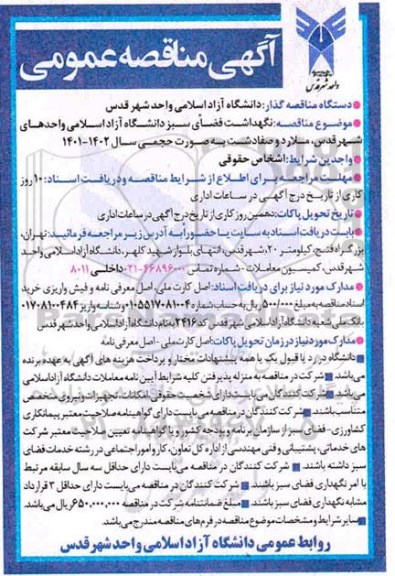 آگهی مناقصه عمومی
واحد شهرقدس
● دستگاه مناقصه گذار: دانشگاه آزاد اسلامی واحد شهر قدس
● موضوع مناقصه: نگهداشت فضای سبز دانشگاه آزاد اسلامی واحدهای
شهر قدس، ملارد و صفادشت به صورت حجمی سال ۱۴۰۲-۱۴۰۱
● واجدین شرایط: اشخاص حقوقی
● مهلت مراجعه برای اطلاع از شرایط مناقصه و دریافت اسناد: ۱۰ روز
کاری از تاریخ درج آگهی در ساعات اداری
● تاریخ تحویل پاکات: دهمین روز کاری از تاریخ درج آگهی در ساعات اداری
● بابت دریافت اسناد به سایت یا حضورا به آدرس زیر مراجعه فرمائید: تهران،
بزرگراه فتح، کیلومتر ۲۰، شهر قدس، انتهای بلوار شهید کلهر، دانشگاه آزاد اسلامی واحد
شهر قدس، کمیسیون معاملات - شماره تماس ۴۶۸۹۶۰۰۰-۰۲۱ داخلی ۸۰۱۱
● مدارک مورد نیاز برای دریافت اسناد: اصل کارت ملی، اصل معرفی نامه و فیش واریزی خرید
اسناد مناقصه به مبلغ ۵۰۰/۰۰۰ ریال به حساب شماره ۰۱۰۵۵۱۷۰۸۱۰۰۴ و شناسه واریز ۰۱۷۰۸۱۰۰۴۸۴
بانک ملی شعبه دانشگاه آزاد اسلامی شهر قدس کد ۲۴۱۶ بنام دانشگاه آزاد اسلامی واحد شهر قدس
● مدارک مورد نیاز در زمان تحویل پاکات: اصل کارت ملی - اصل معرفی نامه
■ دانشگاه در رد یا قبول یک یا همه پیشنهادات مختار و پرداخت هزینه های آگهی به عهده برنده
می باشد. ■ شرکت در مناقصه به منزله پذیرفتن کلیه شرایط آیین نامه معاملات دانشگاه آزاد اسلامی
می باشد. ■ شرکت کنندگان می بایست دارای شخصیت حقوقی، امکانات، تجهیزات و نیروی متخصص
متناسب باشند. ■ شرکت کنندگان در مناقصه می بایست دارای گواهینامه صلاحیت معتبر پیمانکاری
کشاورزی - فضای سبز از سازمان برنامه و بودجه کشور و یا گواهینامه تعیین صلاحیت معتبر شرکت
های خدماتی، پشتیبانی و فنی مهندسی از اداره کل تعاون، کار و امور اجتماعی در رشته خدمات فضای
سبز داشته باشند. ■ شرکت کنندگان در مناقصه می بایست دارای حداقل سه سال سابقه مرتبط
با امر نگهداری فضای سبز باشند. ■ شرکت کنندگان در مناقصه می بایست دارای حداقل ۳ قرارداد
مشابه نگهداری فضای سبز باشند. ■ مبلغ ضمانتنامه شرکت در مناقصه ۶۵۰,۰۰۰,۰۰۰ ریال می باشد.
■ سایر شرایط و مشخصات موضوع مناقصه در فرم های مناقصه مندرج می باشد.
روابط عمومی دانشگاه آزاد اسلامی واحد شهر قدس